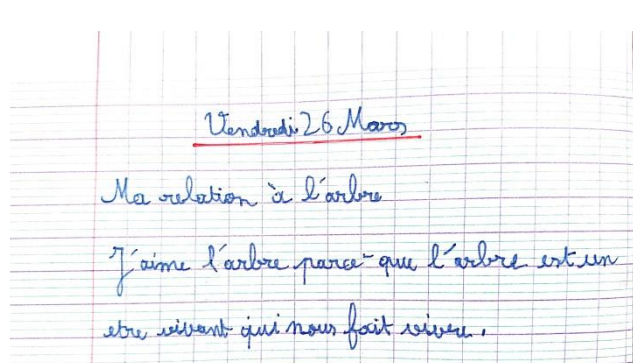 Vendredi 26 Mars
Ma relation à l'arbre
J'aime l'arbre parce-que l'arbre est un
etre vivant qui nous fait vivre.